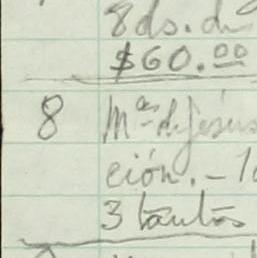 8 ds. de
$60.00
8 Ma. de Jesús
ción. - 1
3 tantos